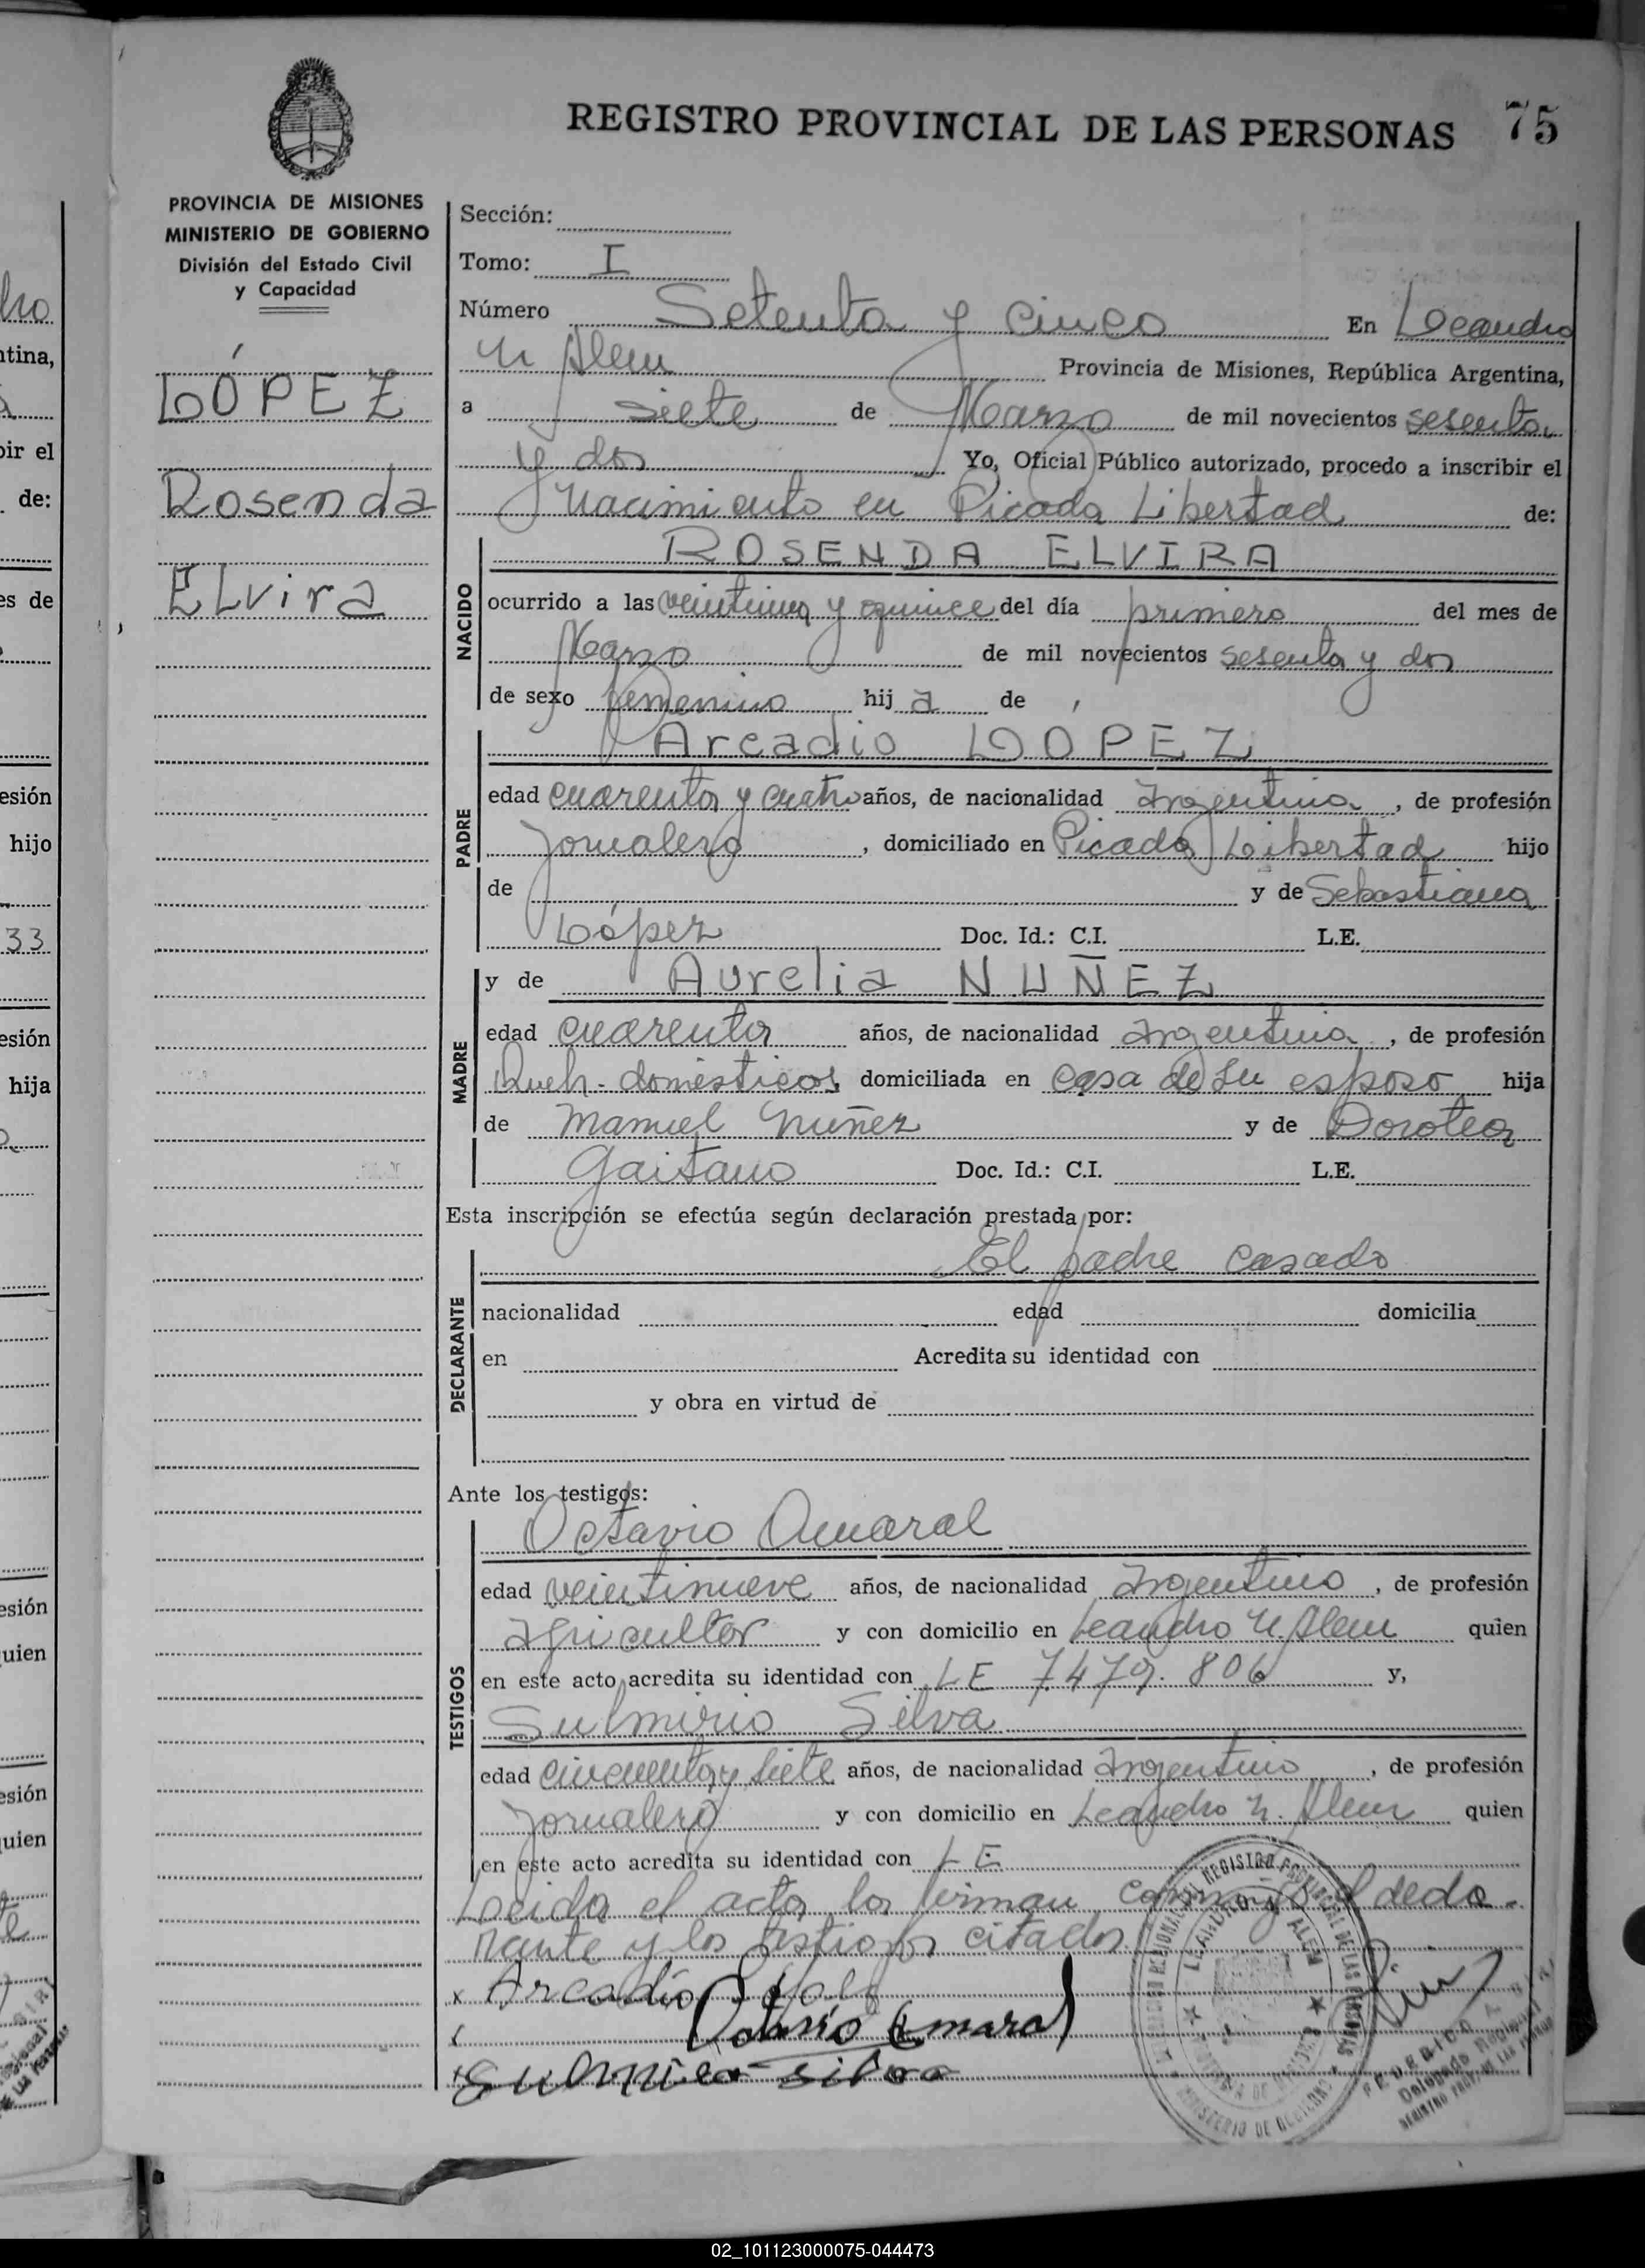 REGISTRO PROVINCIAL DE LAS PERSONAS 75
PROVINCIA DE MISIONES
MINISTERIO DE GOBIERNO
División del Estado Civil
y Capacidad
LÓPEZ
Rosenda
ELvira
Sección:
Tomo: I
Número Setenta y cinco En Leandro
N Alem Provincia de Misiones, República Argentina,
a siete de Marzo de mil novecientos sesenta
y dos Yo, Oficial Público autorizado, procedo a inscribir el
nacimiento en Picada Libertad de:
NACIDO
ROSENDA ELVIRA
ocurrido a las veintiuna y quince del día primero del mes de
Marzo de mil novecientos sesenta y dos
de sexo femenino hij a de
PADRE
Arcadio LÓPEZ
edad cuarenta y cuatro años, de nacionalidad argentina, de profesión
Jornalero, domiciliado en Picada Libertad hijo
de y de Sebastiana
López Doc. Id.: C.I. L.E.
MADRE
y de Aurelia NUÑEZ
edad cuarenta años, de nacionalidad argentina, de profesión
Queh. domésticos domiciliada en casa de su esposo hija
de Manuel Nuñez y de Dorotea
Gaitano Doc. Id.: C.I. L.E.
Esta inscripción se efectúa según declaración prestada por:
DECLARANTE
El padre casado
nacionalidad edad domicilia
en Acredita su identidad con
y obra en virtud de
Ante los testigos:
TESTIGOS
Octavio Amaral
edad veintinueve años, de nacionalidad argentino, de profesión
agricultor y con domicilio en Leandro N. Alem quien
en este acto acredita su identidad con LE 7.479.806 y,
Sulmirio Silva
edad cincuenta y siete años, de nacionalidad argentino, de profesión
Jornalero y con domicilio en Leandro N. Alem quien
en este acto acredita su identidad con LE
Leida el acta, la firman conmigo el decla-
rante y los testigos citados
x Arcadio
Octavio Amaral
Sulmirio Silva
LEANDRO N. ALEM
MINISTERIO DE GOBIERNO
02_101123000075-044473